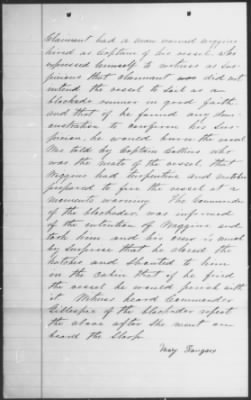 Claimant had a man named Wiggins
hired as Captain of his vessel who
expressed himself to witness as sus
picious that claimant was did not
intend the vessel to sail as a
blockade runner in good faith
and that if he found any dem
onstration to confirm his sus
picion, he would burn the vessel
Was told by Captain Collins who
was the mate of the vessel, that
Wiggins had turpentine and matches
prepared to fire the vessel at a
moments warning. The Commander
of the blockader was informed
of the intention of Wiggins and
took him and his crew so much
by surprise that he closed the
hatches and shouted to him
in the cabin that if he fired
the vessel he would perish with
it. Witness heard Commander
Gillespie of the blockader repeat
the above after she went on
board the Sloop
Mary